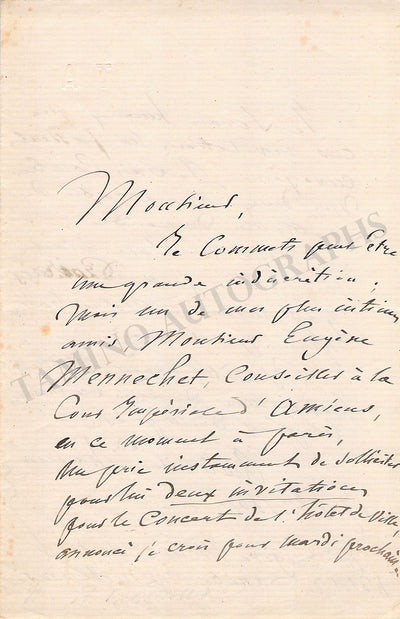 Monsieur,
Je Commets peut être
une grande indiscrétion ;
Mais un de mes plus intimes
amis Monsieur Eugène
Mennechet, Conseiller à la
Cour Impériale d'Amiens,
en ce moment à Paris,
me prie instamment de solliciter
pour lui deux invitations
pour le Concert de l'hôtel de Ville,
annoncé je crois pour mardi prochain.
TAMINO AUTOGRAPHS